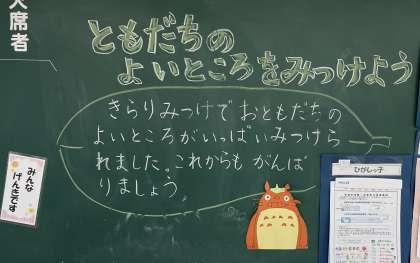 欠席者
ともだちの
よいところをみつけよう
きらりみつけでおともだちの
よいところがいっぱいみつけら
れました。これからもがんば
りましょう
みんな
げんきです
ひがしっ子